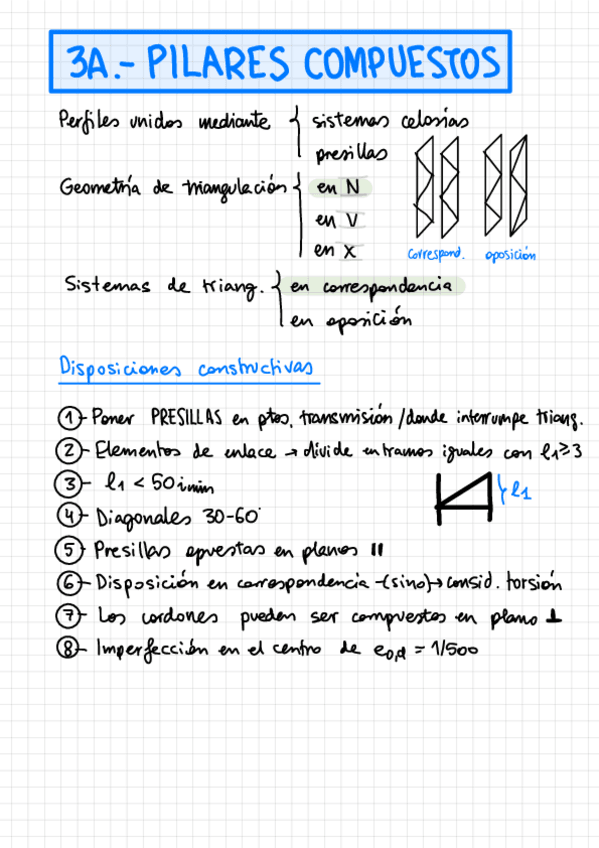 3A.- PILARES COMPUESTOS
Perfiles unidos mediante { sistemas celosías
presillas
Geometría de triangulación { en N
en V
en X
correspond. oposición
Sistemas de triang. { en correspondencia
en oposición
Disposiciones constructivas
①- Poner PRESILLAS en ptos. transmisión / donde interrumpe triang.
②- Elementos de enlace → divide en tramos iguales con l1≥3
③- l1 < 50 imin
l1
④- Diagonales 30-60°
⑤- Presillas opuestas en planos II
⑥- Disposición en correspondencia -(sino)→ consid. torsión
⑦- Los cordones pueden ser compuestos en plano ⊥
⑧- Imperfección en el centro de e0,d = 1/500